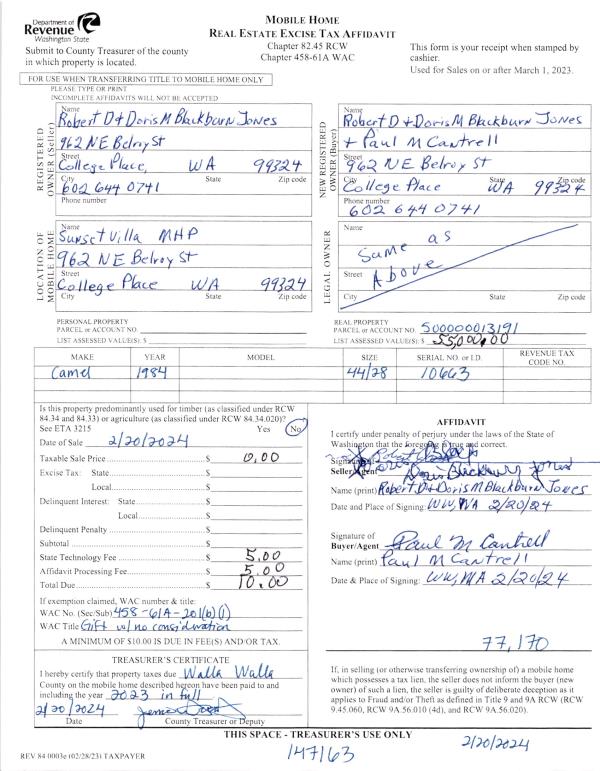 Department of
Revenue
Washington State
Submit to County Treasurer of the county
in which property is located.
MOBILE HOME
REAL ESTATE EXCISE TAX AFFIDAVIT
Chapter 82.45 RCW
Chapter 458-61A WAC
This form is your receipt when stamped by
cashier.
Used for Sales on or after March 1, 2023.
FOR USE WHEN TRANSFERRING TITLE TO MOBILE HOME ONLY
PLEASE TYPE OR PRINT
INCOMPLETE AFFIDAVITS WILL NOT BE ACCEPTED
REGISTERED OWNER (Seller)
Name
Robert D + Doris M Blackburn Jones
962 NE Belroy St
Street
College Place, WA 99324
City State Zip code
602 644 0741
Phone number
NEW REGISTERED OWNER (Buyer)
Name
Robert D + Doris M Blackburn Jones
+ Paul M Cantrell
Street
962 NE Belroy St
City State Zip code
College Place WA 99324
Phone number
602 644 0741
LOCATION OF MOBILE HOME
Name
Sunset Villa MHP
962 NE Belroy St
Street
College Place WA 99324
City State Zip code
LEGAL OWNER
Name
Same as
Above
Street
City State Zip code
PERSONAL PROPERTY
PARCEL or ACCOUNT NO.
LIST ASSESSED VALUE(S): $
REAL PROPERTY
PARCEL or ACCOUNT NO. 500000013191
LIST ASSESSED VALUE(S): $ 55,000.00
MAKE YEAR MODEL SIZE SERIAL NO. or I.D. REVENUE TAX CODE NO.
Camel 1984 44/28 10663
Is this property predominantly used for timber (as classified under RCW
84.34 and 84.33) or agriculture (as classified under RCW 84.34.020)?
See ETA 3215 Yes No
Date of Sale 2/20/2024
Taxable Sale Price $ 0.00
Excise Tax: State $
Local $
Delinquent Interest: State $
Local $
Delinquent Penalty $
Subtotal $
State Technology Fee $ 5.00
Affidavit Processing Fee $ 5.00
Total Due $ 10.00
If exemption claimed, WAC number & title:
WAC No. (Sec/Sub) 458-61A-201(b)(1)
WAC Title Gift w/ no consideration
A MINIMUM OF $10.00 IS DUE IN FEE(S) AND/OR TAX.
AFFIDAVIT
I certify under penalty of perjury under the laws of the State of
Washington that the foregoing is true and correct.
Signature of
Seller/Agent Doris Blackburn Jones
Name (print) Robert D + Doris M Blackburn Jones
Date and Place of Signing: WW, WA 2/20/24
Signature of
Buyer/Agent Paul M Cantrell
Name (print) Paul M Cantrell
Date & Place of Signing: WW, WA 2/20/24
77,170
TREASURER'S CERTIFICATE
I hereby certify that property taxes due Walla Walla
County on the mobile home described hereon have been paid to and
including the year 2023 in full
2/20/2024
Date County Treasurer or Deputy
If, in selling (or otherwise transferring ownership of) a mobile home
which possesses a tax lien, the seller does not inform the buyer (new
owner) of such a lien, the seller is guilty of deliberate deception as it
applies to Fraud and/or Theft as defined in Title 9 and 9A RCW (RCW
9.45.060, RCW 9A.56.010 (4d), and RCW 9A.56.020).
THIS SPACE - TREASURER'S USE ONLY
REV 84 0003e (02/28/23) TAXPAYER
147163
2/20/2024